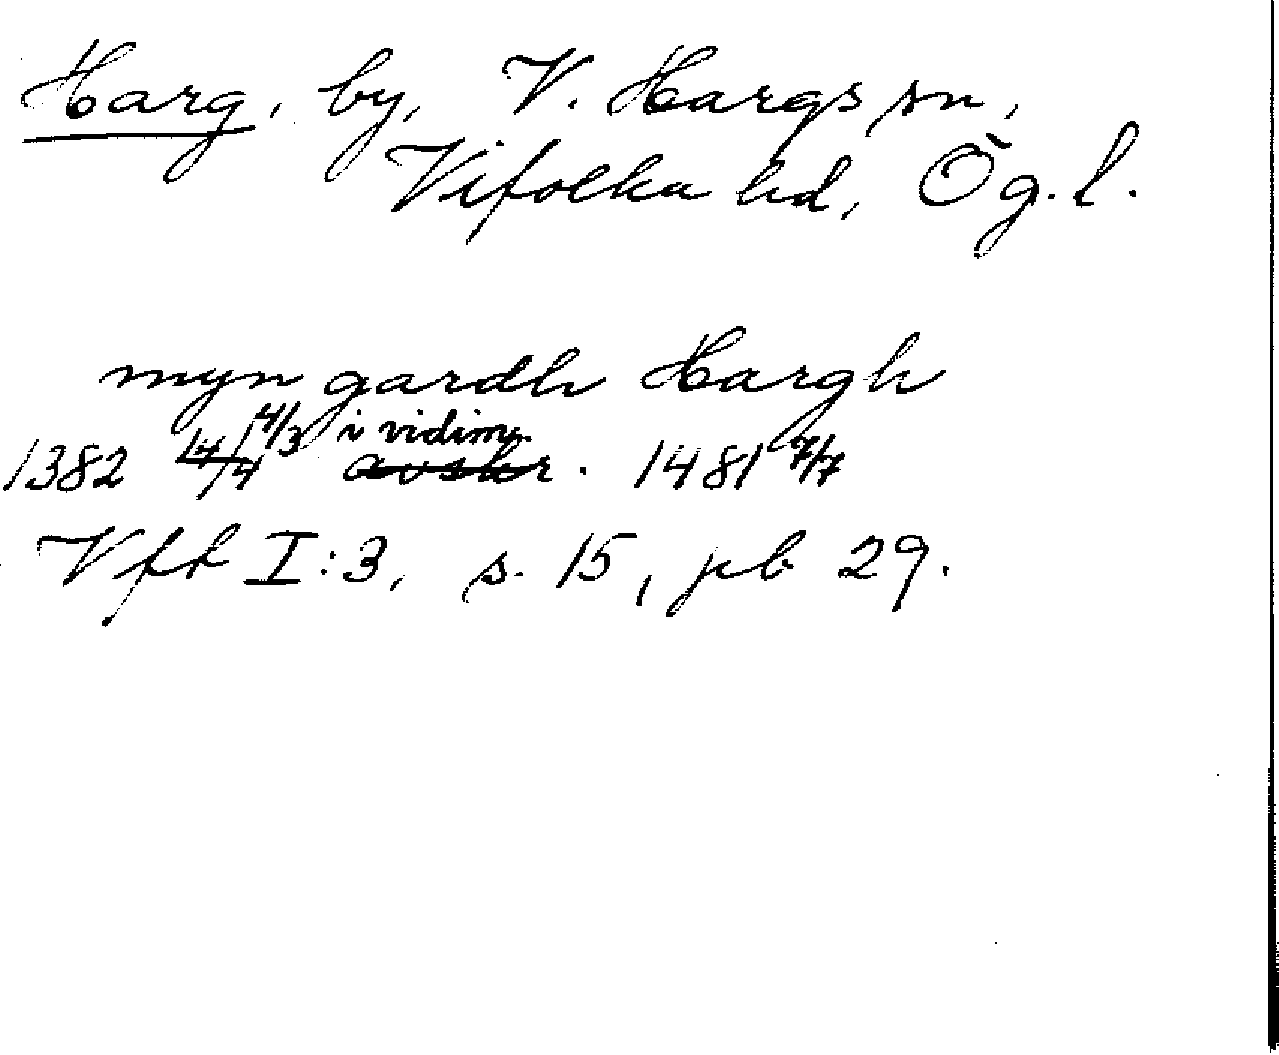 Harg, by, V. Hargs sn,
Vifolka hd, Ög. l.
myn gardh Hargh
4/3 i vidim.
1382 14/4 avskr. 1481 7/7
Vft I:3, s. 15, pb 29.